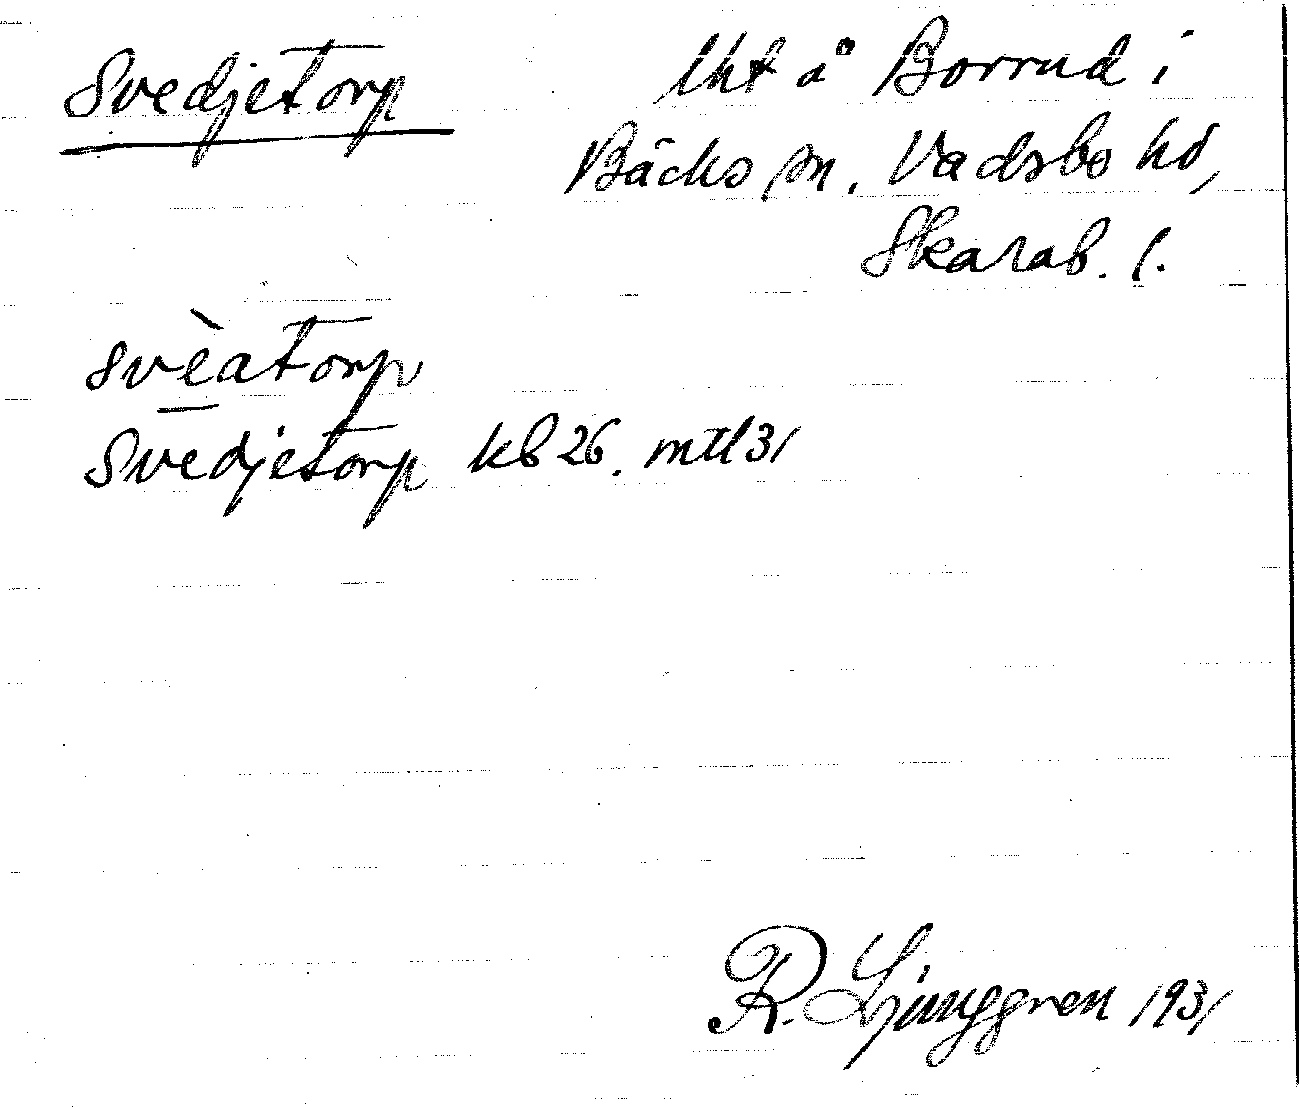 Svedjetorp
lht å Borrud i
Bäcks sn, Vadsbo hd,
Skarab. l.
svèatorp
Svedjetorp kb 26. mtl 31
R. Ljunggren 1931